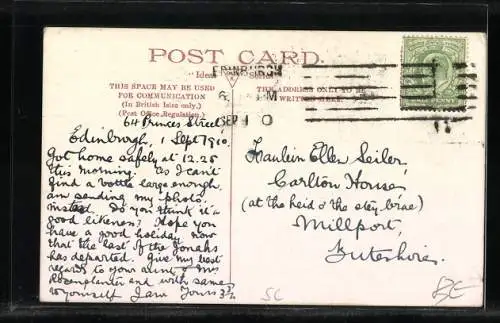 POST CARD.
"Ideal" Series
EDINBURGH
THIS SPACE MAY BE USED
FOR COMMUNICATION
(In British Isles only.)
(Post Office Regulation.)
THE ADDRESS ONLY TO BE
WRITTEN HERE.
6 PM
SEP 1 0
64 Princes Street,
Edinburgh, 1 Sept 1910.
Got home safely at 12.25
this morning. As I can't
find a bottle large enough,
am sending my photo.
instead. Do you think it a
good likeness? Hope you
have a good holiday now
that the last of the Jonahs
has departed. Give my best
regards to your aunt & Mrs
and with same
to yourself I am Yours
Fraulein Ellen Seiler,
Carlton House,
(at the heid o' the stey brae)
Millport,
Buteshire.
5C